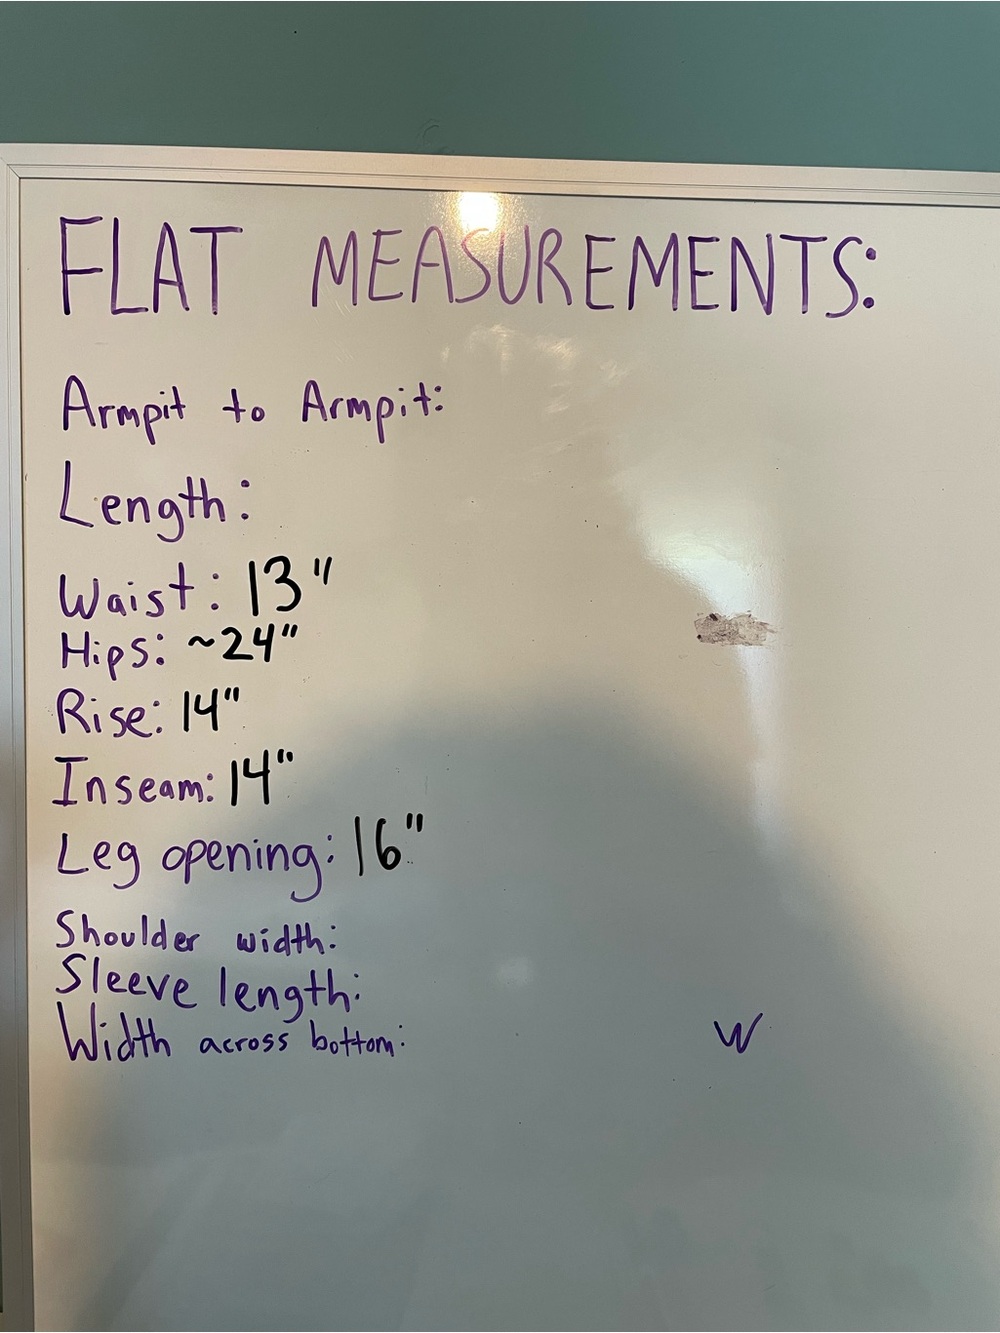 FLAT MEASUREMENTS:
Armpit to Armpit:
Length:
Waist: 13"
Hips: ~24"
Rise: 14"
Inseam: 14"
Leg opening: 16"
Shoulder width:
Sleeve length:
Width across bottom:
W